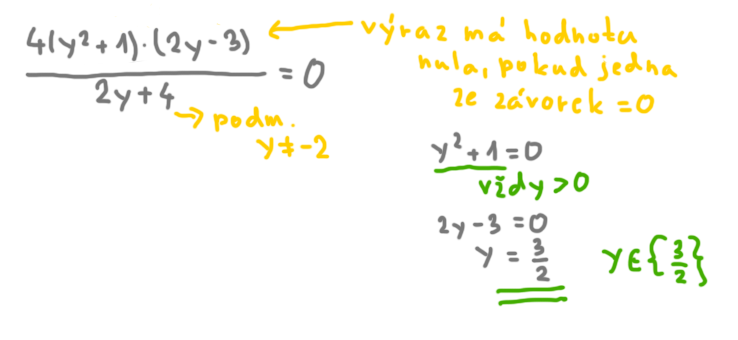 4(y² + 1)·(2y - 3) / 2y + 4 = 0
→ podm.
y ≠ -2
← výraz má hodnotu
nula, pokud jedna
ze závorek = 0
y² + 1 = 0
vždy > 0
2y - 3 = 0
y = 3/2
y ∈ {3/2}